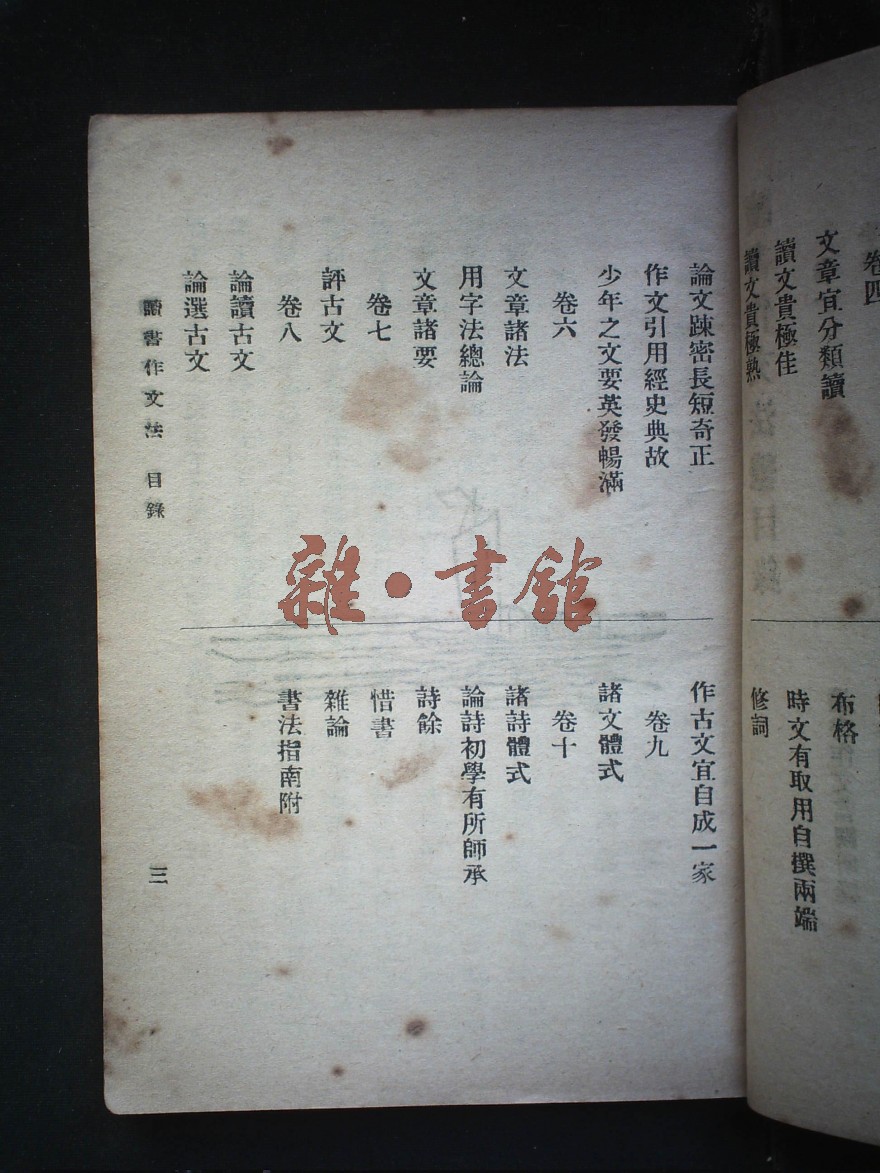 卷四
文章宜分類讀
讀文貴極佳
讀文貴極熟
布格
時文有取用自撰兩端
修詞
論文疎密長短奇正
作文引用經史典故
少年之文要英發暢滿
卷六
文章諸法
用字法總論
文章諸要
卷七
評古文
卷八
論讀古文
論選古文
作古文宜自成一家
卷九
諸文體式
卷十
諸詩體式
論詩初學有所師承
詩餘
惜書
雜論
書法指南附
讀書作文法 目錄
三
雜·書館